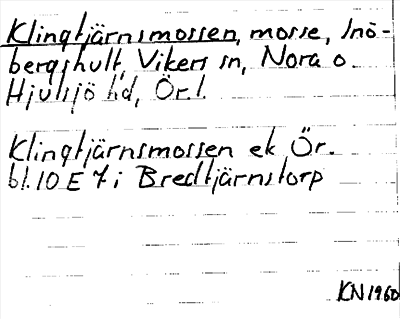 Klingtjärnsmossen, mosse, Inö-
bergshult, Vikers sn, Nora o.
Hjulsjö hd, Ör.l.
Klingtjärnsmossen ek Ör.
bl. 10 E 7 i Bredtjärnstorp
KN 1960